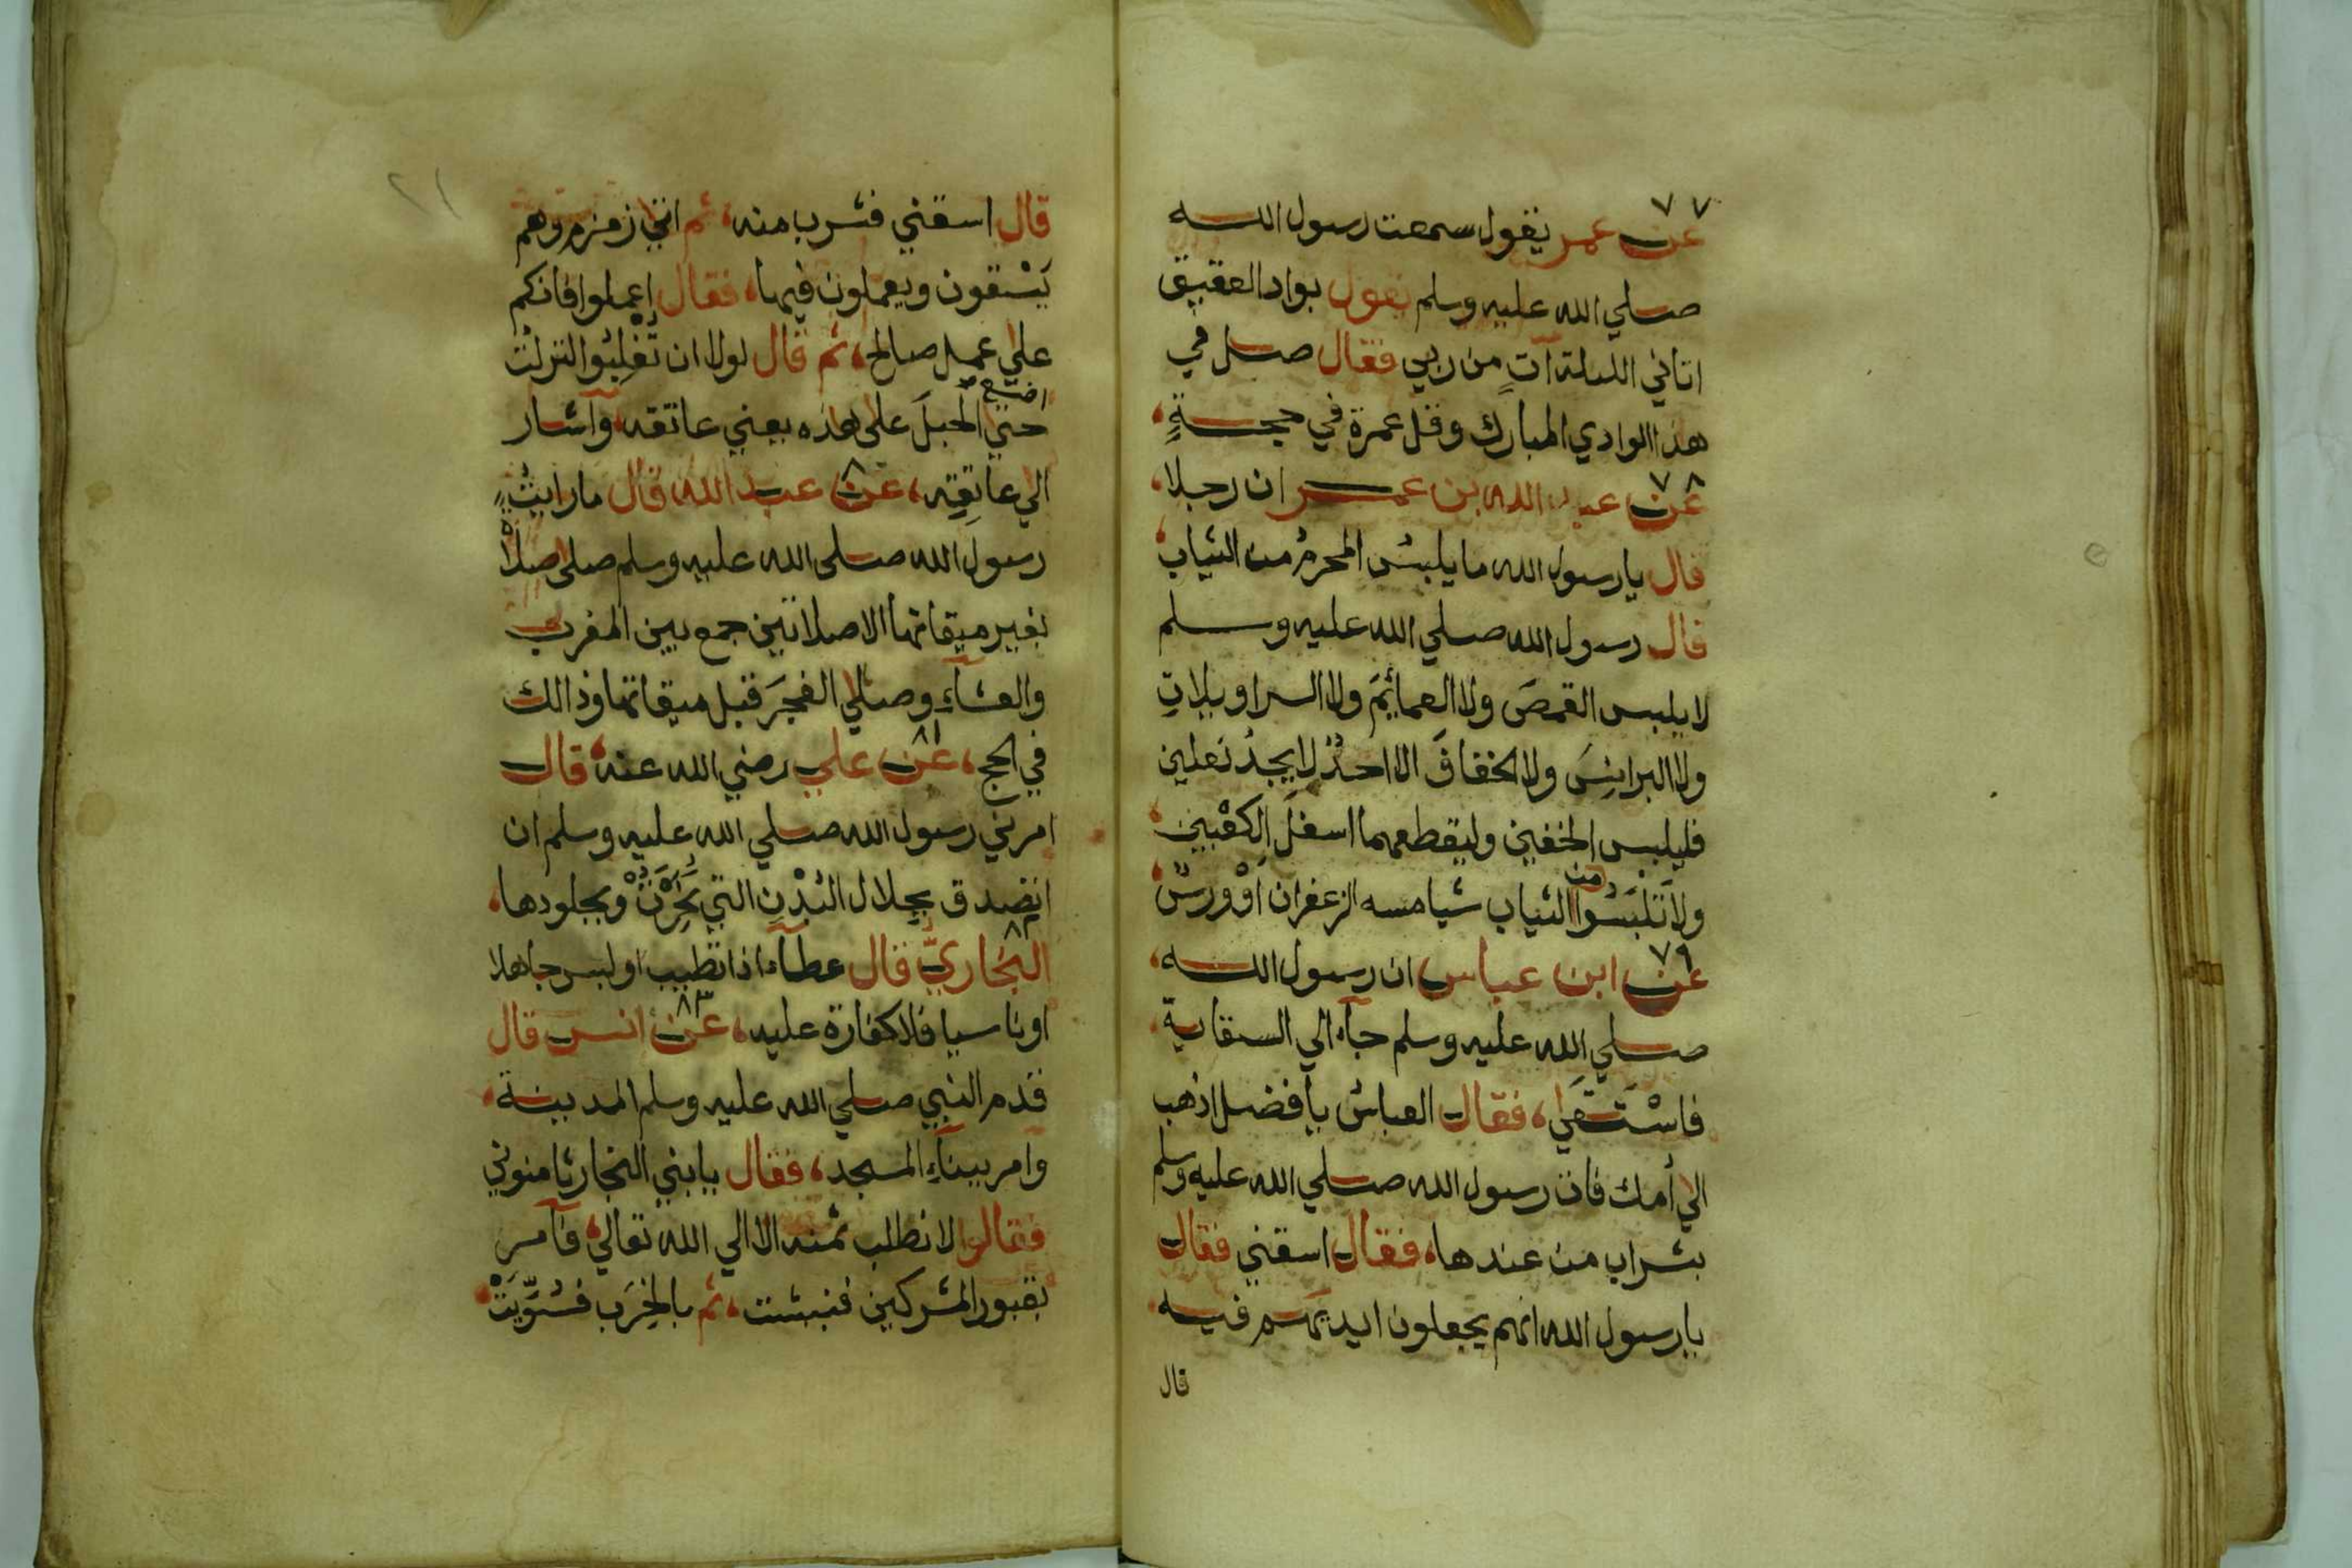 ٧٧
عن عمر يقول سمعت رسول الله
صلي الله عليه وسلم يقول بواد العقيق
اتاني الليلة آتٍ من ربي فقال صل في
هذا الوادي المبارك وقل عمرة في حجةٍ،
٧٨
عن عبد الله بن عمر ان رجلا،
قال يا رسول الله ما يلبسُ المحرمُ من الثياب،
قال رسول الله صلي الله عليه وسلم
لا يلبس القمصَ ولا العمائمَ ولا السراويلاتِ
ولا البرانِسَ ولا الخفافَ الا احدٌ لا يجدُ نعلين
فليلبس الخفين وليقطعهما اسفلَ الكعْبين،
ولا تَلبَسُوا من الثياب شيا مسه الزعفران اوْ ورسٌ،
٧٩
عن ابن عباس ان رسول الله،
صلي الله عليه وسلم جآء الي السقاية،
فاسْتَسقَي، فقال العباسُ يا فضل اذهب
الي أمك فات رسول الله صلي الله عليه وسلم
بشراب من عندها، فقال اسقني فقال
يا رسول الله انهم يجعلون ايديهم فيه
قال
٢١
قال اسقني فشرب منه، ثم اتي زمزم وهم
يَسْتقون ويعملون فيها، فقال إعملوا فانكم
علي عمل صالح، ثم قال لولا ان تُغْلبُوا لنزلتُ
حتي اضع الحبلَ علي هذه يعني عاتقه، وآشار
٨٠
الي عاتِقِه، عن عبد الله قال ما رايتُ
رسول الله صلى الله عليه وسلم صلى صلاةً
بغير ميقاتها الا صلاتين جمع بين المغرب
والعشآءِ وصلي الفجرَ قبل ميقاتها وذالك
٨١
في الحج، عن علي رضي الله عنه، قال
امرني رسول الله صلي الله عليه وسلم ان
اتصدق بجِلال البُدْنِ التي نُحِرَتْ وبجلودها،
٨٢
البُخاريّ قال عطآء اذا تطيب او لبس جاهلا
٨٣
او ناسيا فلا كفارة عليه، عن انس قال
قدم النبي صلي الله عليه وسلم المدينة،
وامر ببنآءِ المسجد، فقال يا بني النجار ثامنوني
فقالوا لا نطلب ثمنه الا الي الله تعالي، فآمر
بقبور المشركين فنبشت، ثم بالخِرَب فسُوّيَتْ،